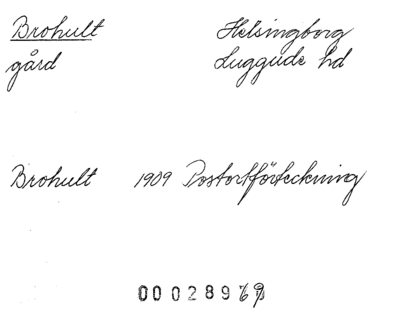 Brohult Helsingborg
gård Luggude hd
Brohult 1909 Postortförteckning
00028969